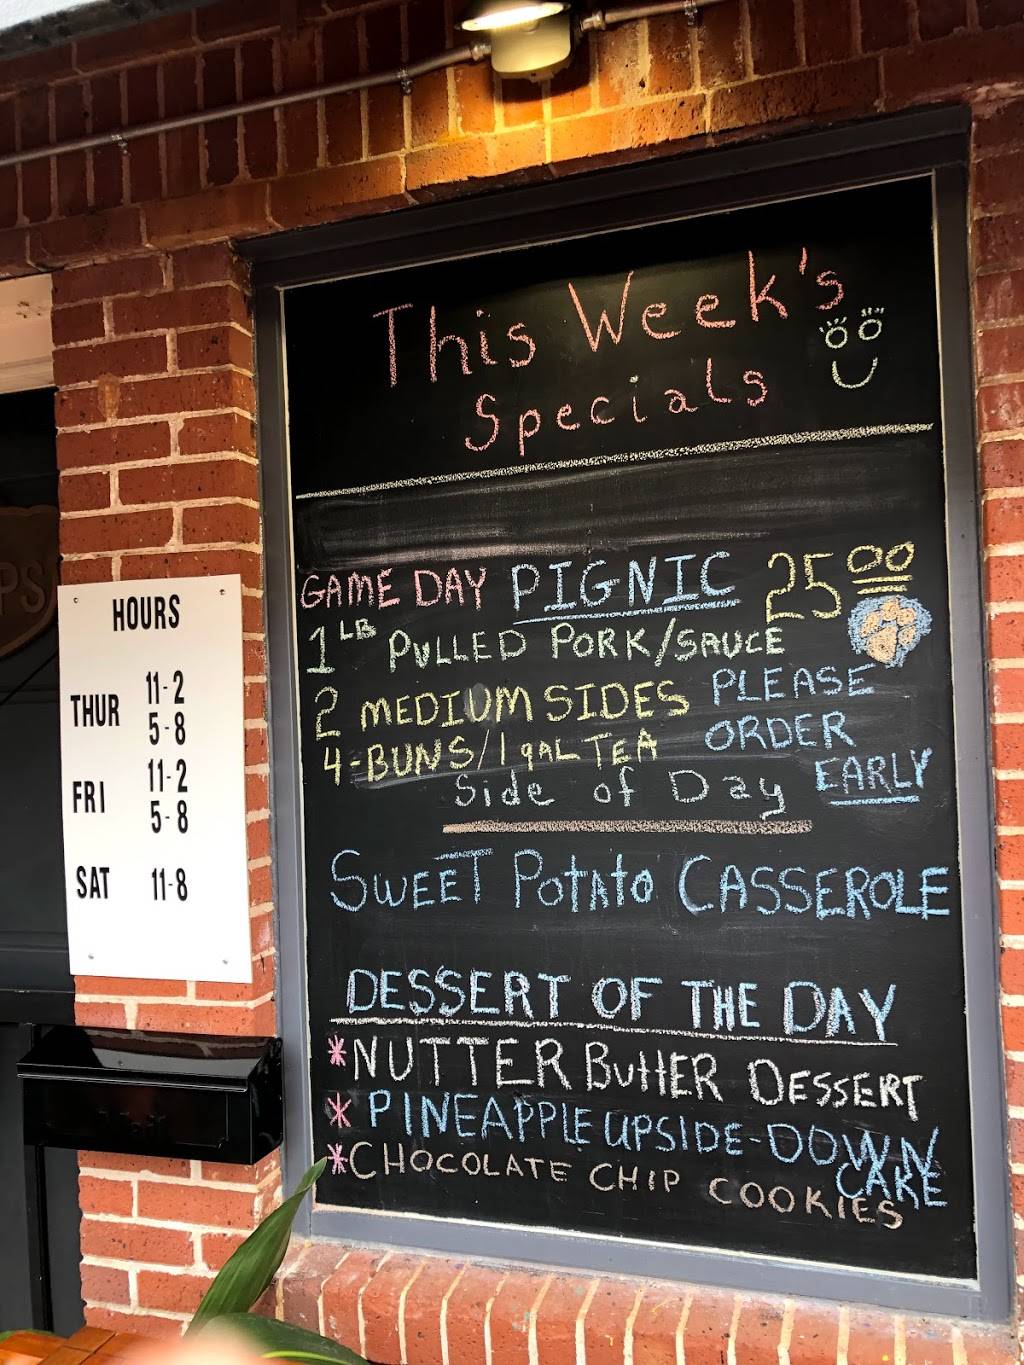 This Week's
Specials
GAME DAY PIGNIC 25 00
1 LB PULLED PORK/SAUCE
2 MEDIUM SIDES PLEASE
4-BUNS/1 gAL TEA ORDER
EARLY
Side of Day
SWEET PotAto CASSEROLE
DESSERT OF THE DAY
*NUTTER ButtER DESSERT
* PINEAPPLE UPSIDE-DOWN
CAKE
*CHOCOLATE CHIP COOKIES
HOURS
THUR 11-2
5-8
FRI 11-2
5-8
SAT 11-8
PS